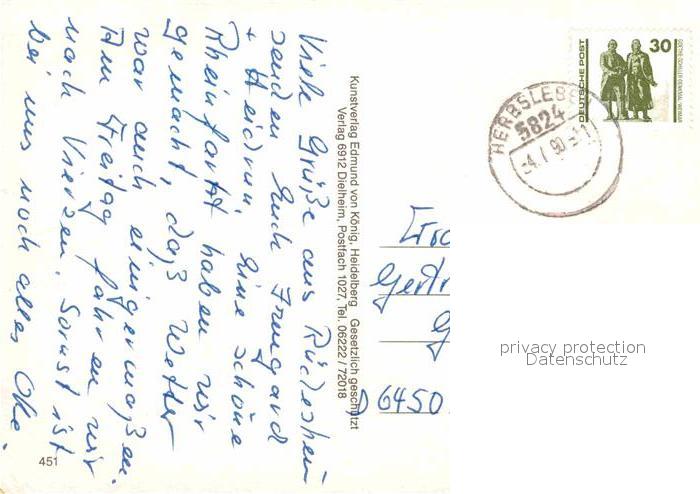 Viele Grüße aus Rüdesheim
senden Euch Irmgard
+ Heidrun. Eine schöne
Rheinfahrt haben wir
gemacht, daß Wetter
war auch einigermaßen.
Am Freitag fahren wir
nach Viersen. Sonst ist
bei uns noch alles Oke.
Kunstverlag Edmund von König, Heidelberg Gesetzlich geschützt
Verlag 6912 Dielheim, Postfach 1027, Tel. 06222 / 72018
451
DEUTSCHE POST
30
GOETHE-SCHILLER-DENKMAL WEIMAR
HERBSLEBEN
5824
Gertr
G
D 6450
privacy protection
Datenschutz